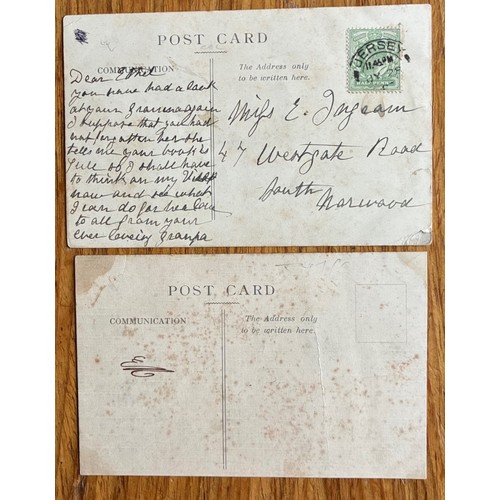 POST CARD
COMMUNICATION
The Address only
to be written here.
JERSEY
11.45 PM
Dear Ethel
You have had a look
at your Granma again
I suppose that you had
not forgotten her she
tells me your book is
full so I shall have
to think on my
now and see what
I can do for her love
to all from your
ever loveing Granpa
Miss E. Ingram
47 Westgate Road
South
Norwood
POST CARD
COMMUNICATION
The Address only
to be written here.